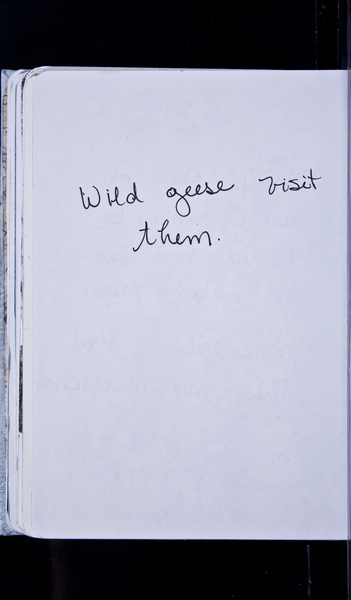 Wild geese visit
them.